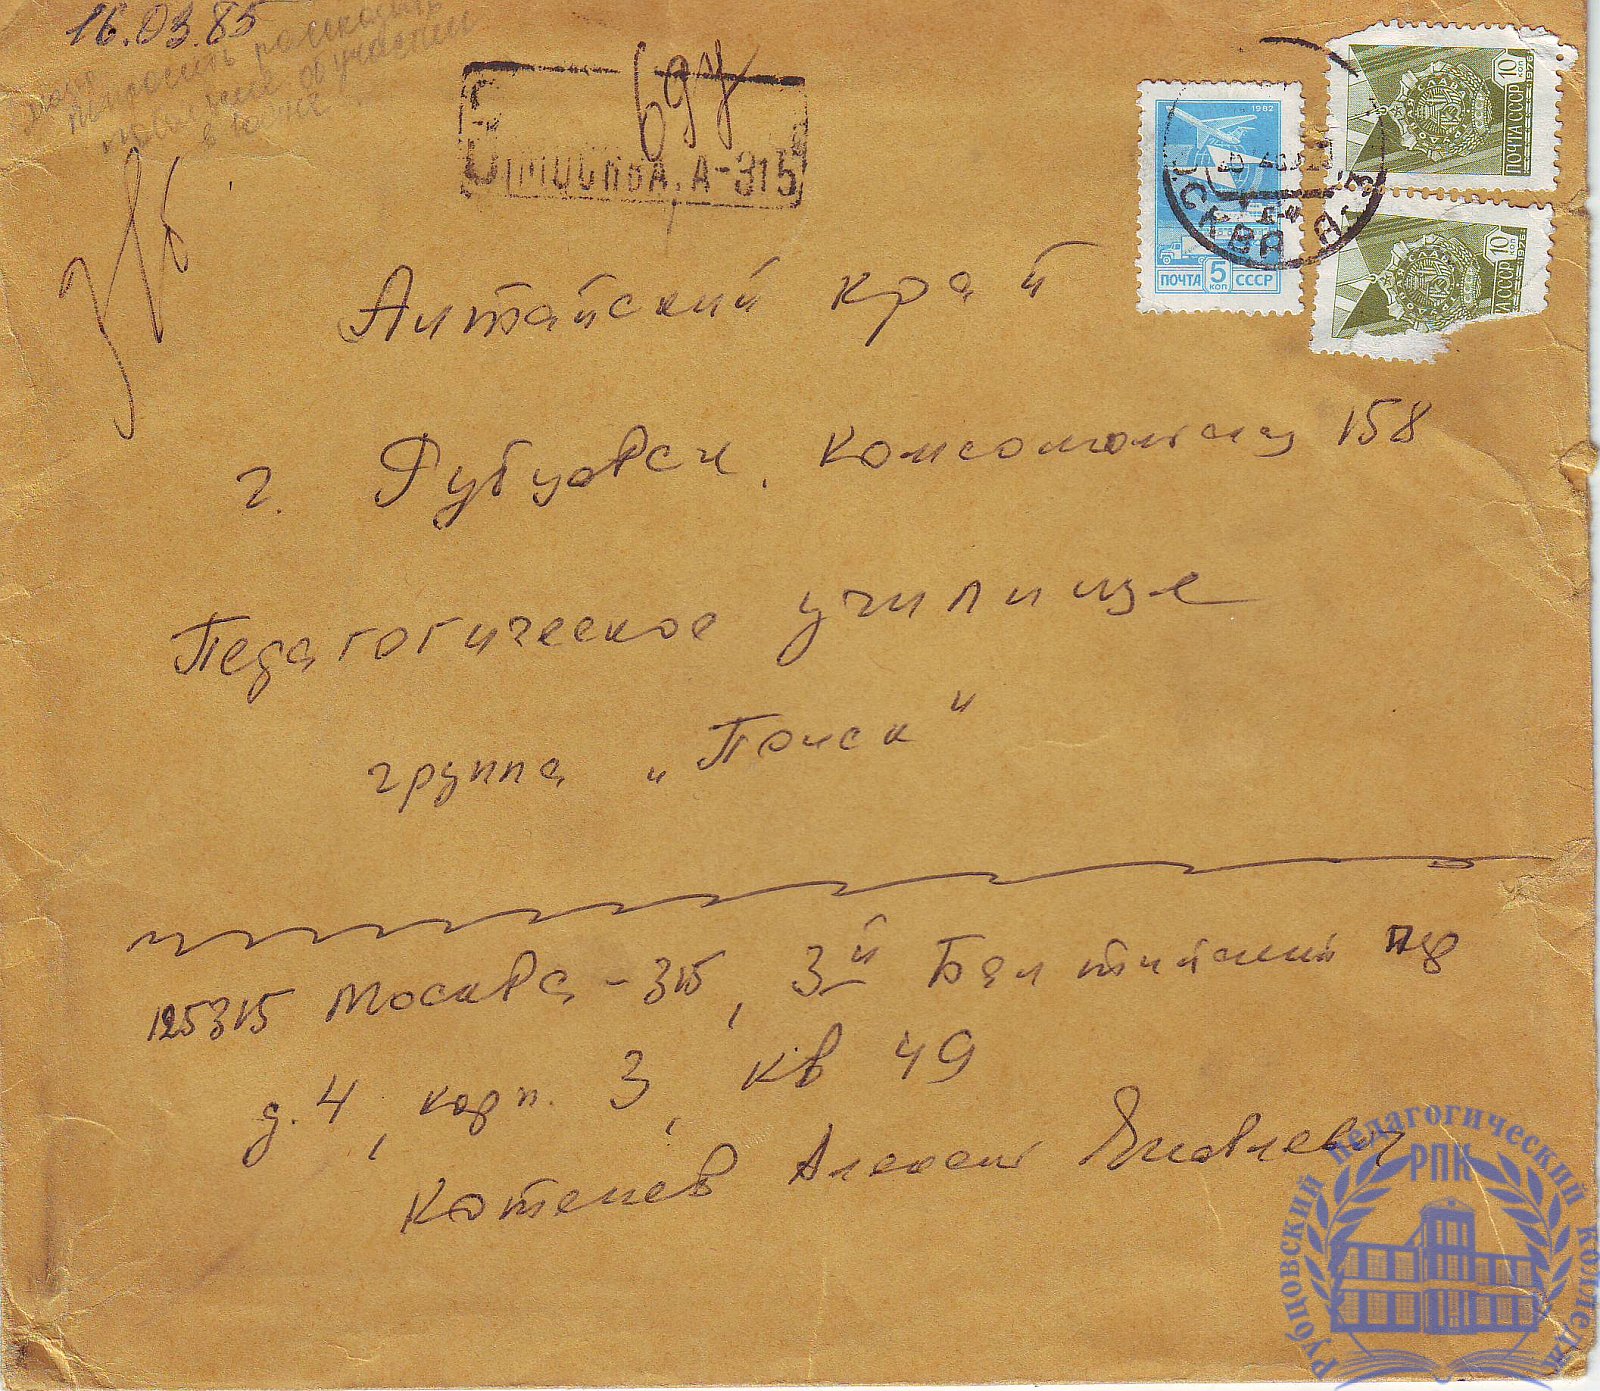 16.03.85
попросить рассказать
об участии
в
697
Москва, А-315
1982
ПОЧТА 5 КОП СССР
10 КОП
ПОЧТА СССР
1976
10 КОП
СССР
1976
Алтайский край
г. Рубцовск, Комсомольская 158
Педагогическое училище
группа „Поиск"
125315 Москва-315, 3й Балтийский пер
д. 4, корп. 3, кв 49
Котенев Алексей Яковлевич
Рубцовский педагогический колледж
РПК